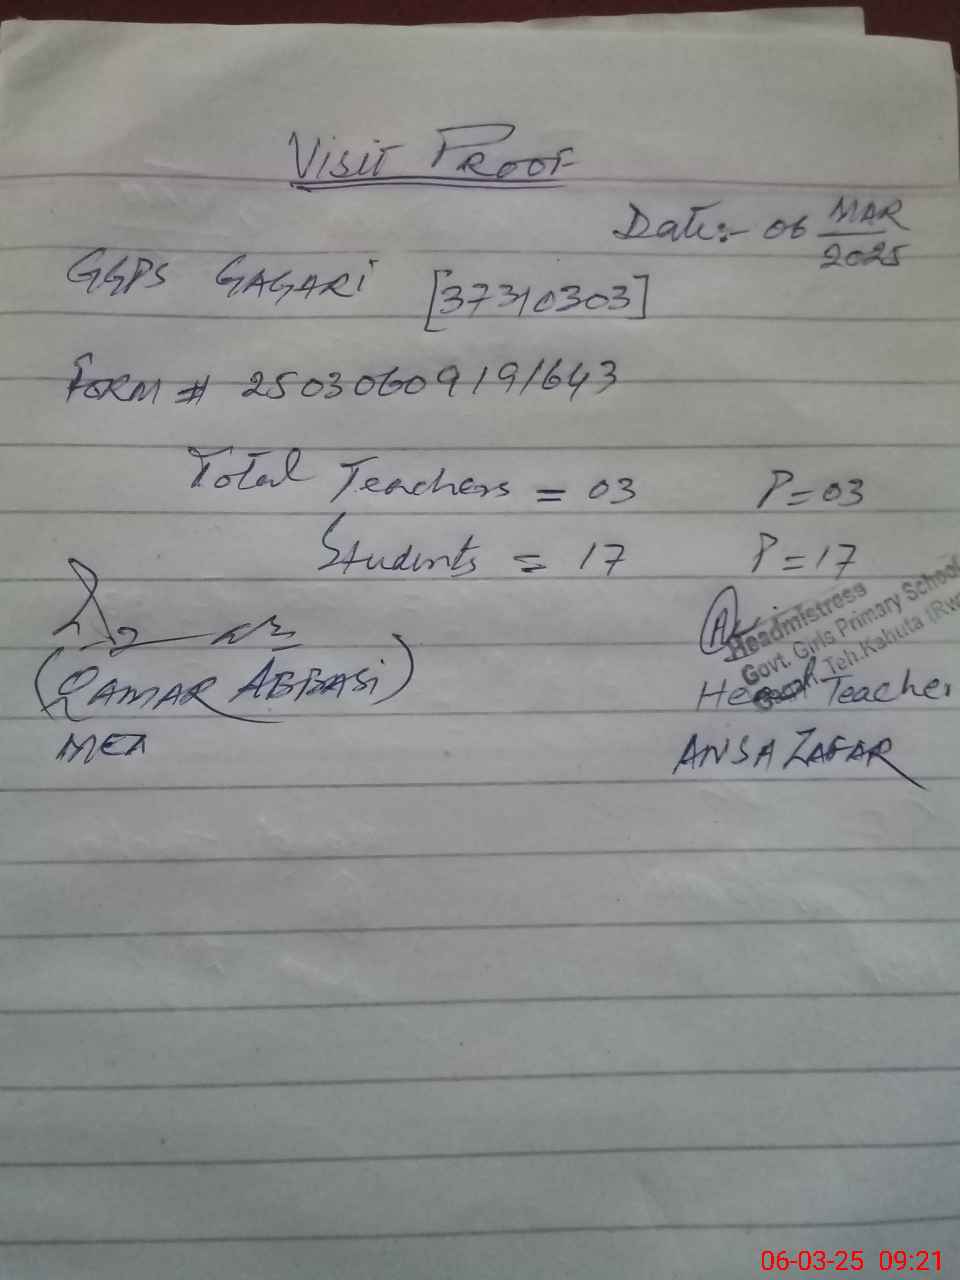 Visit Proof
Date:- 06 MAR
2025
GGPS GAGARi [37310303]
Form # 25030609191643
Total Teachers = 03 P=03
Students = 17 P=17
Headmistress
Govt. Girls Primary School
Teh.Kahuta (Rwp
(QAMAR ABBASi)
Head Teacher
MEA
ANSA ZAFAR
06-03-25 09:21